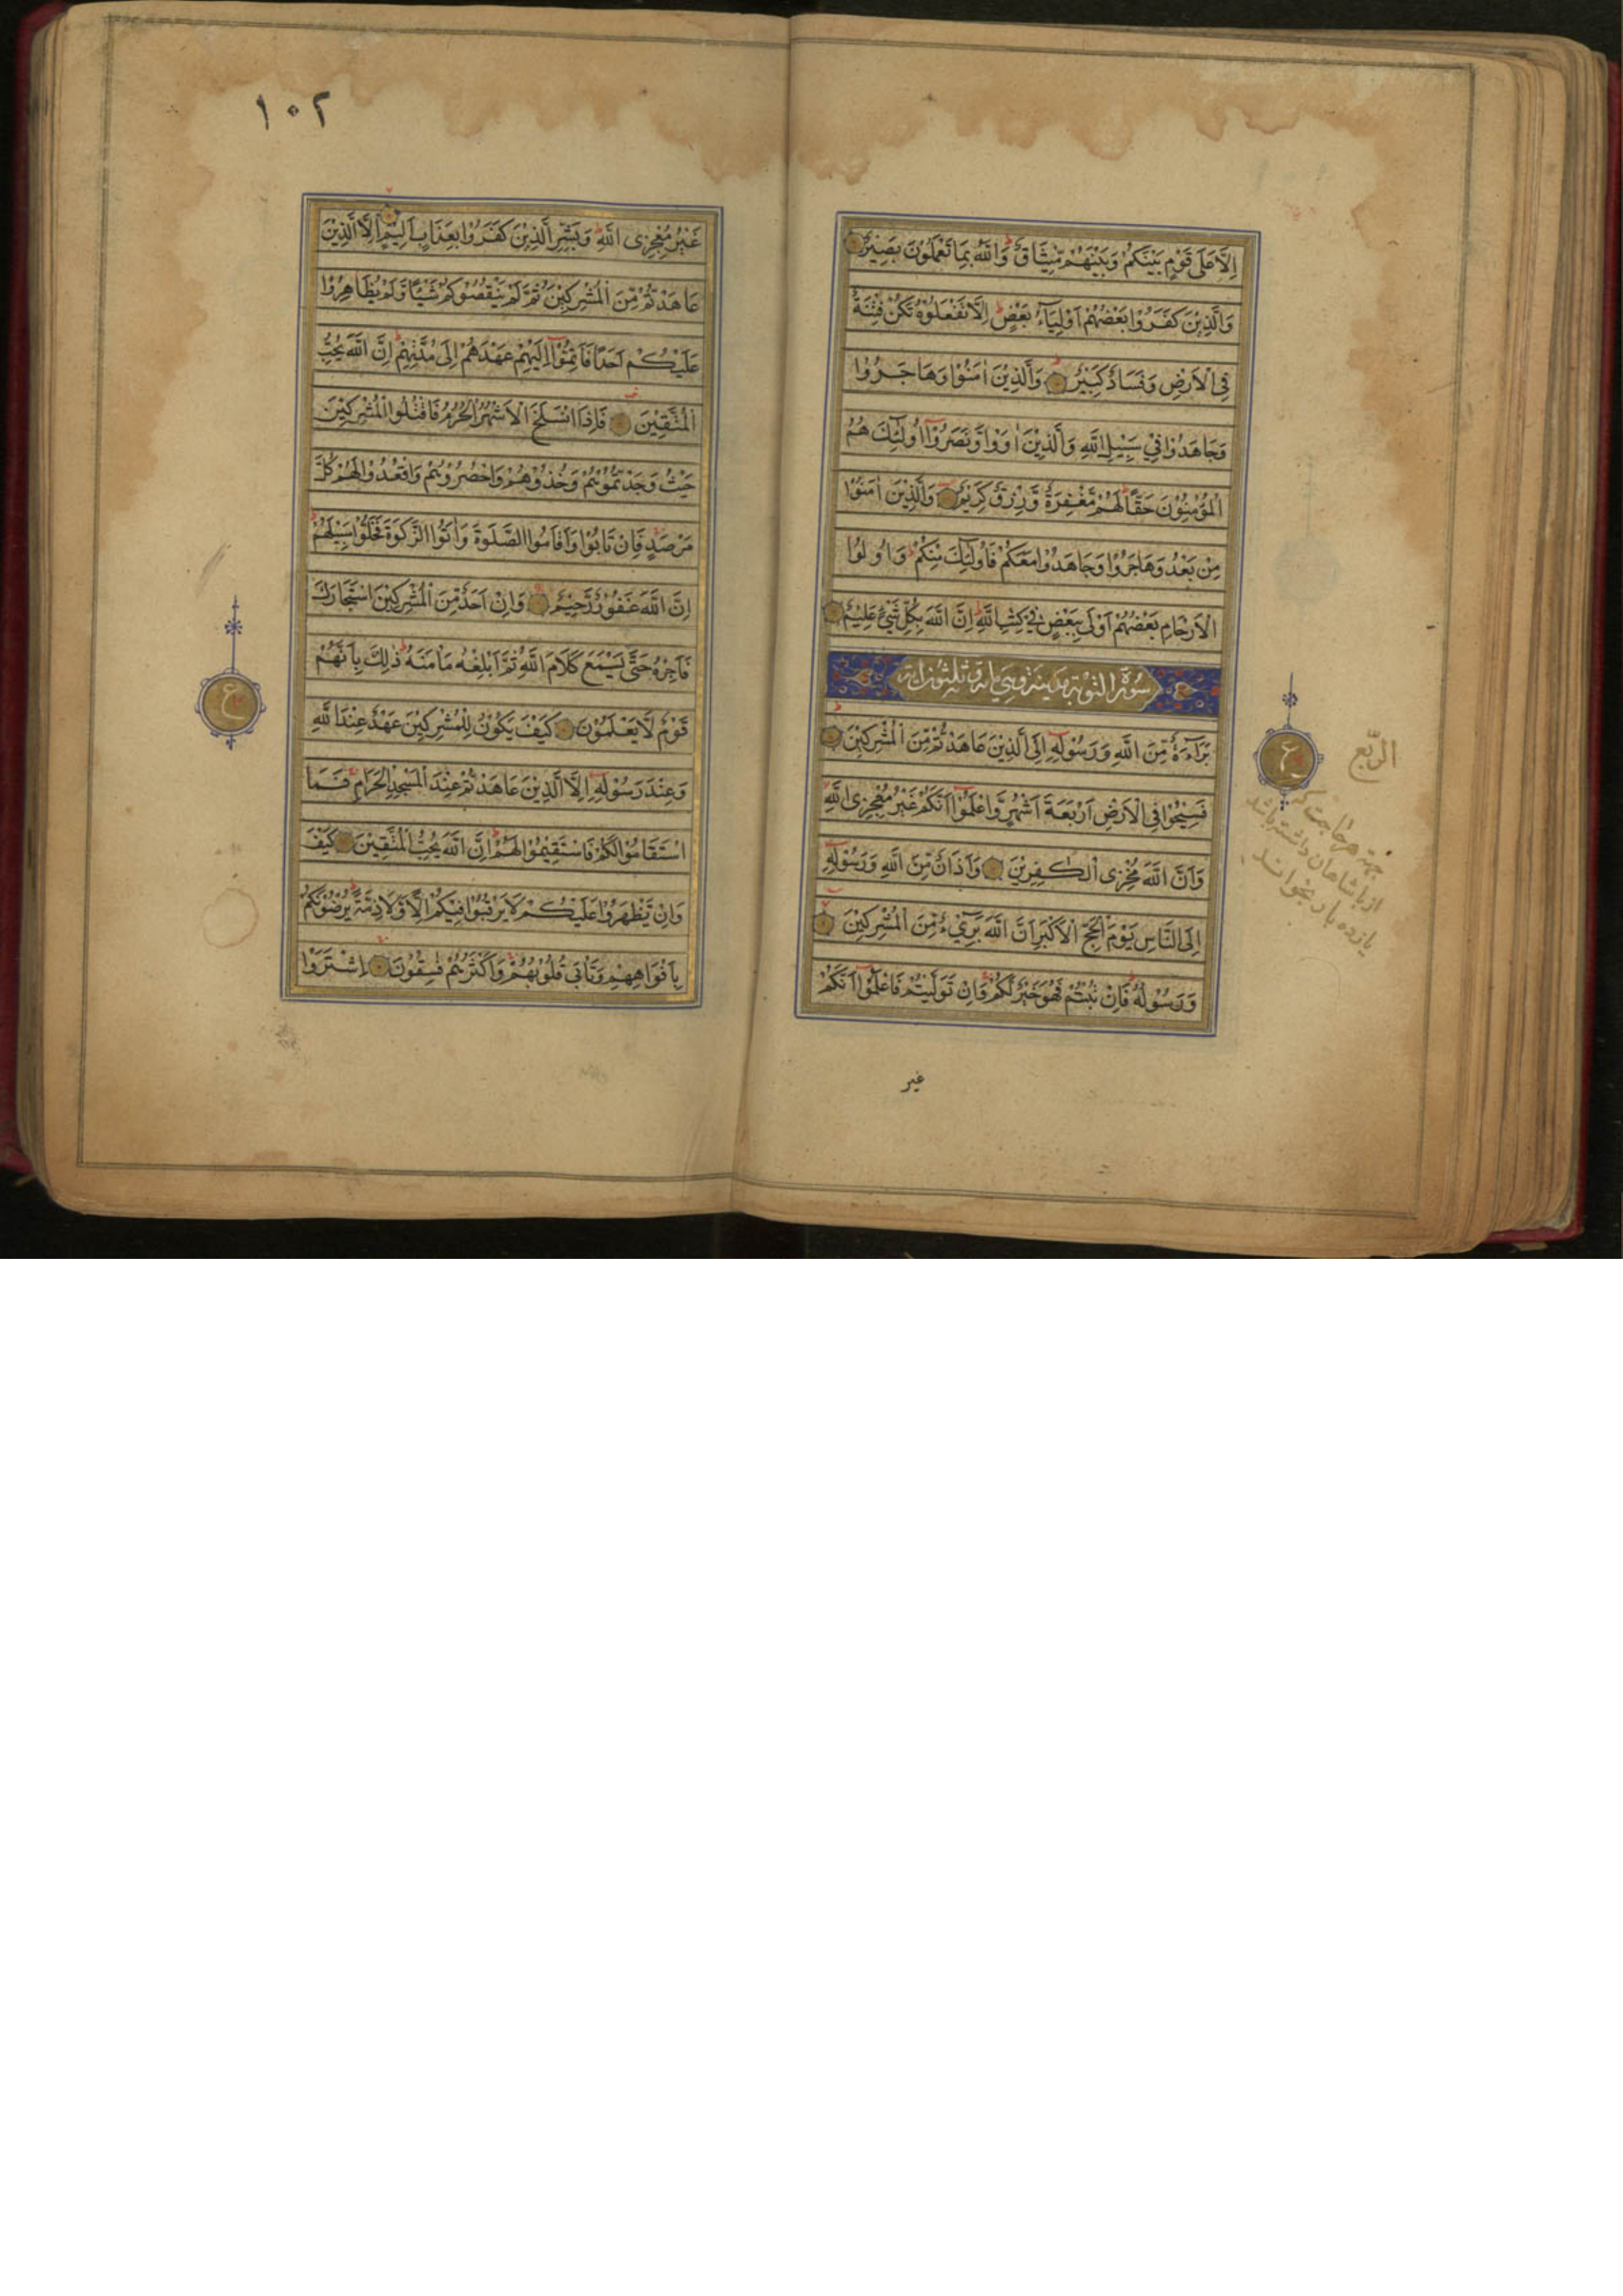 اِلَّا عَلَى قَوْمٍ بَيْنَكُمْ وَبَيْنَهُمْ مِّيثَاقٌ ۗ وَاللّٰهُ بِمَا تَعْمَلُوْنَ بَصِيْرٌ
وَالَّذِيْنَ كَفَرُوْا بَعْضُهُمْ اَوْلِيَآءُ بَعْضٍ اِلَّا تَفْعَلُوْهُ تَكُنْ فِتْنَةٌ
فِي الْاَرْضِ وَفَسَادٌ كَبِيْرٌ وَالَّذِيْنَ اٰمَنُوْا وَهَاجَرُوْا
وَجَاهَدُوْا فِيْ سَبِيْلِ اللّٰهِ وَالَّذِيْنَ اٰوَوْا وَّنَصَرُوْٓا اُولٰٓئِكَ هُمُ
الْمُؤْمِنُوْنَ حَقًّا لَهُمْ مَّغْفِرَةٌ وَّرِزْقٌ كَرِيْمٌ وَالَّذِيْنَ اٰمَنُوْا
مِنْ بَعْدُ وَهَاجَرُوْا وَجَاهَدُوْا مَعَكُمْ فَاُولٰٓئِكَ مِنْكُمْ وَاُولُوا
الْاَرْحَامِ بَعْضُهُمْ اَوْلٰى بِبَعْضٍ فِيْ كِتٰبِ اللّٰهِ اِنَّ اللّٰهَ بِكُلِّ شَيْءٍ عَلِيْمٌ
سُوْرَةُ التَّوْبَة مدينة وهي مائة وثلثون اية
بَرَآءَةٌ مِّنَ اللّٰهِ وَرَسُوْلِهٖٓ اِلَى الَّذِيْنَ عَاهَدْتُّمْ مِّنَ الْمُشْرِكِيْنَ
فَسِيْحُوْا فِي الْاَرْضِ اَرْبَعَةَ اَشْهُرٍ وَّاعْلَمُوْٓا اَنَّكُمْ غَيْرُ مُعْجِزِى اللّٰهِ
وَاَنَّ اللّٰهَ مُخْزِى الْكٰفِرِيْنَ وَاَذَانٌ مِّنَ اللّٰهِ وَرَسُوْلِهٖٓ
اِلَى النَّاسِ يَوْمَ الْحَجِّ الْاَكْبَرِ اَنَّ اللّٰهَ بَرِيْٓءٌ مِّنَ الْمُشْرِكِيْنَ
وَرَسُوْلُهٗ فَاِنْ تُبْتُمْ فَهُوَ خَيْرٌ لَّكُمْ وَاِنْ تَوَلَّيْتُمْ فَاعْلَمُوْٓا اَنَّكُمْ
غير
ع
الرّبع
جهة هر حاجت كه
از پادشاهان داشته باشد
يازده بار بخواند
١٠٢
غَيْرُ مُعْجِزِى اللّٰهِ وَبَشِّرِ الَّذِيْنَ كَفَرُوْا بِعَذَابٍ اَلِيْمٍ اِلَّا الَّذِيْنَ
عَاهَدْتُّمْ مِّنَ الْمُشْرِكِيْنَ ثُمَّ لَمْ يَنْقُصُوْكُمْ شَيْئًا وَّلَمْ يُظَاهِرُوْا
عَلَيْكُمْ اَحَدًا فَاَتِمُّوْٓا اِلَيْهِمْ عَهْدَهُمْ اِلٰى مُدَّتِهِمْ اِنَّ اللّٰهَ يُحِبُّ
الْمُتَّقِيْنَ فَاِذَا انْسَلَخَ الْاَشْهُرُ الْحُرُمُ فَاقْتُلُوا الْمُشْرِكِيْنَ
حَيْثُ وَجَدْتُّمُوْهُمْ وَخُذُوْهُمْ وَاحْصُرُوْهُمْ وَاقْعُدُوْا لَهُمْ كُلَّ
مَرْصَدٍ فَاِنْ تَابُوْا وَاَقَامُوا الصَّلٰوةَ وَاٰتَوُا الزَّكٰوةَ فَخَلُّوْا سَبِيْلَهُمْ
اِنَّ اللّٰهَ غَفُوْرٌ رَّحِيْمٌ وَاِنْ اَحَدٌ مِّنَ الْمُشْرِكِيْنَ اسْتَجَارَكَ
فَاَجِرْهُ حَتّٰى يَسْمَعَ كَلَامَ اللّٰهِ ثُمَّ اَبْلِغْهُ مَاْمَنَهٗ ذٰلِكَ بِاَنَّهُمْ
قَوْمٌ لَّا يَعْلَمُوْنَ كَيْفَ يَكُوْنُ لِلْمُشْرِكِيْنَ عَهْدٌ عِنْدَ اللّٰهِ
وَعِنْدَ رَسُوْلِهٖٓ اِلَّا الَّذِيْنَ عَاهَدْتُّمْ عِنْدَ الْمَسْجِدِ الْحَرَامِ فَمَا
اسْتَقَامُوْا لَكُمْ فَاسْتَقِيْمُوْا لَهُمْ اِنَّ اللّٰهَ يُحِبُّ الْمُتَّقِيْنَ كَيْفَ
وَاِنْ يَّظْهَرُوْا عَلَيْكُمْ لَا يَرْقُبُوْا فِيْكُمْ اِلًّا وَّلَا ذِمَّةً يُرْضُوْنَكُمْ
بِاَفْوَاهِهِمْ وَتَاْبٰى قُلُوْبُهُمْ وَاَكْثَرُهُمْ فٰسِقُوْنَ اِشْتَرَوْا
ع